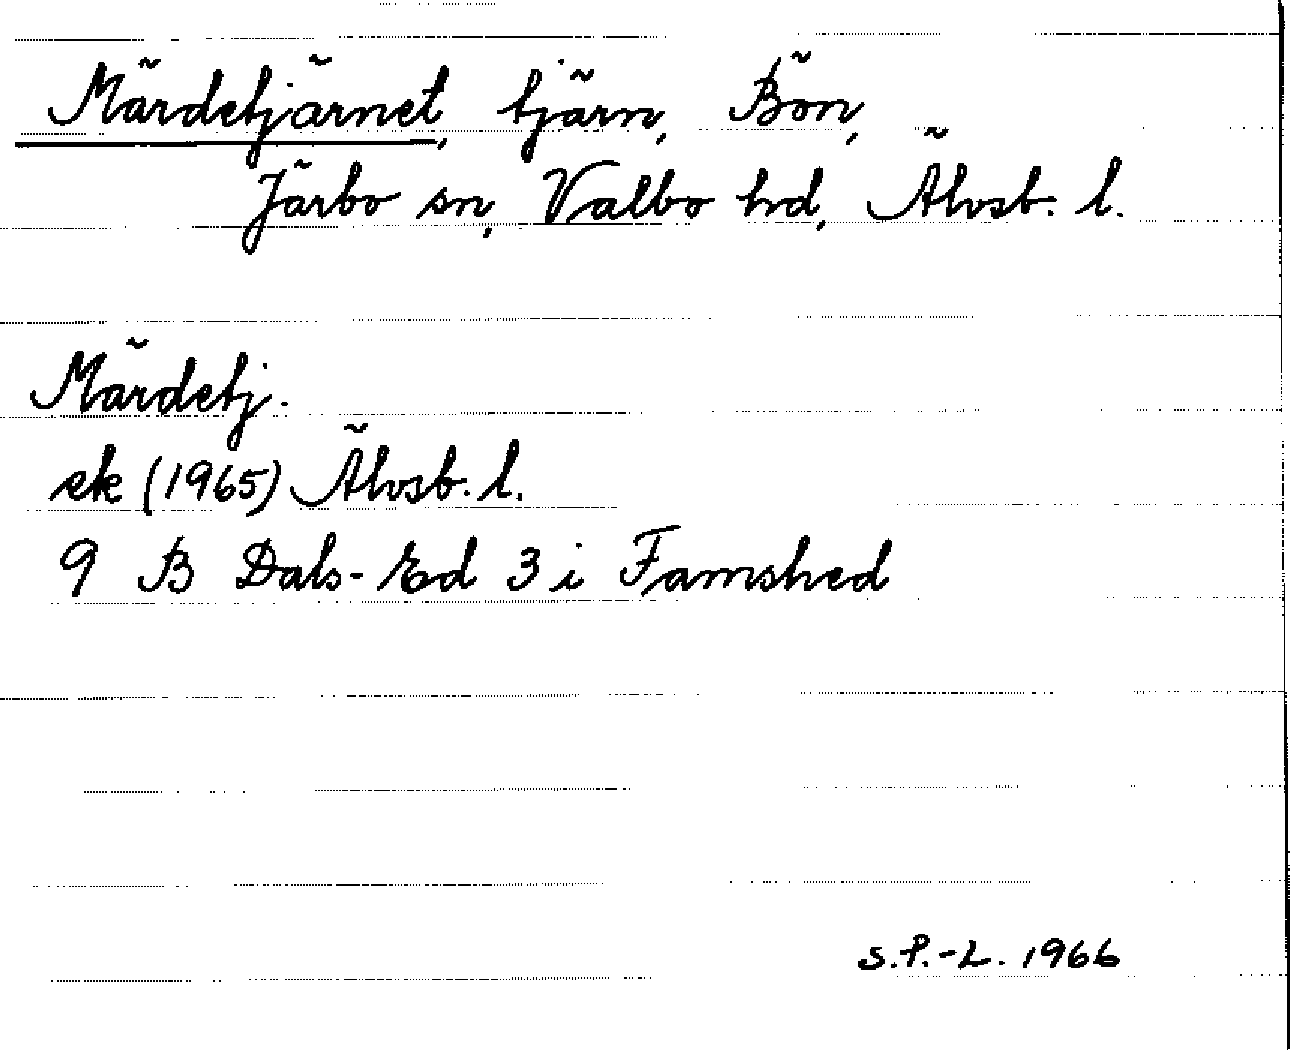 Märdetjärnet, tjärn, Bön,
Järbo sn, Valbo hd, Älvsb. l.
Märdetj.
ek (1965) Älvsb. l.
9 B Dals-Ed 3 i Famshed
S.P.-L. 1966